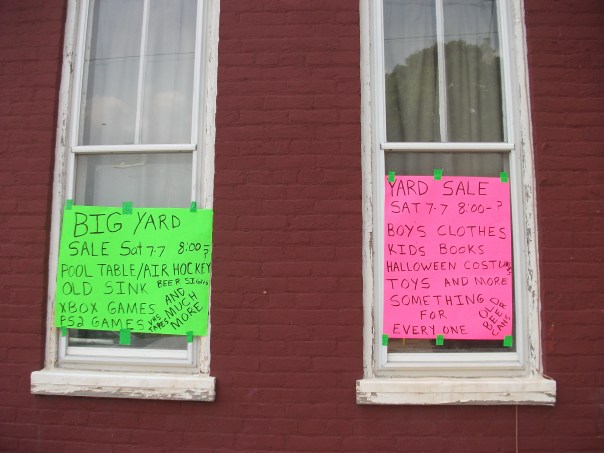 BIG YARD
SALE Sat 7-7 8:00-?
POOL TABLE/AIR HOCKEY
OLD SINK BEER SIGNS
XBOX GAMES
PS2 GAMES VHS TAPES
AND MUCH MORE
YARD SALE
SAT 7-7 8:00-?
BOY'S CLOTHES
KIDS BOOKS
HALLOWEEN COSTUMES
TOYS AND MORE
SOMETHING
FOR
EVERY ONE
OLD BEER CANS